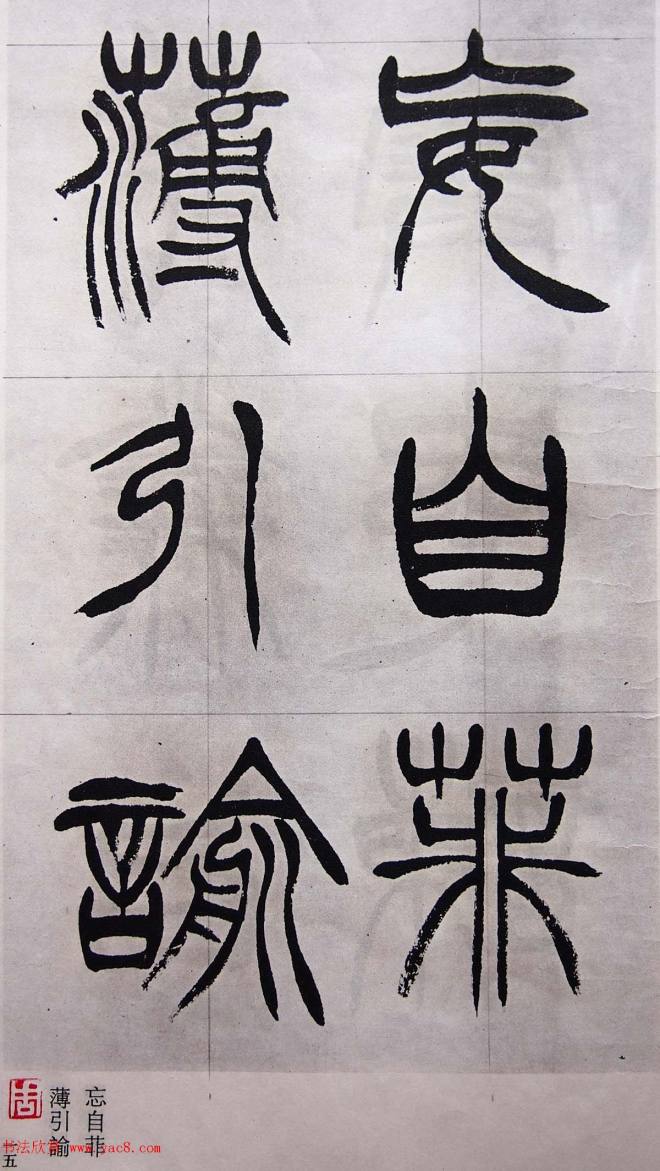 妄自菲
薄引諭
忘自菲
薄引諭
书法欣赏 www.yac8.com
五